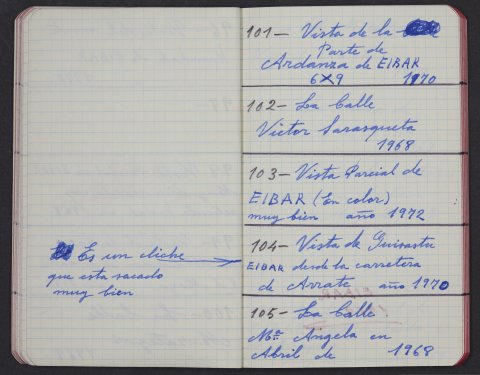 Es un cliche
que esta sacado
muy bien
101- Vista de la
Parte de
Ardanza de EIBAR
6X9 1970
102- La Calle
Victor Sarasqueta
1968
103- Vista Parcial de
EIBAR (En color)
muy bien año 1972
104- Vista de Guisastu
EIBAR desde la carretera
de Arrate año 1970
105- La Calle
Mª Angela en
Abril de 1968